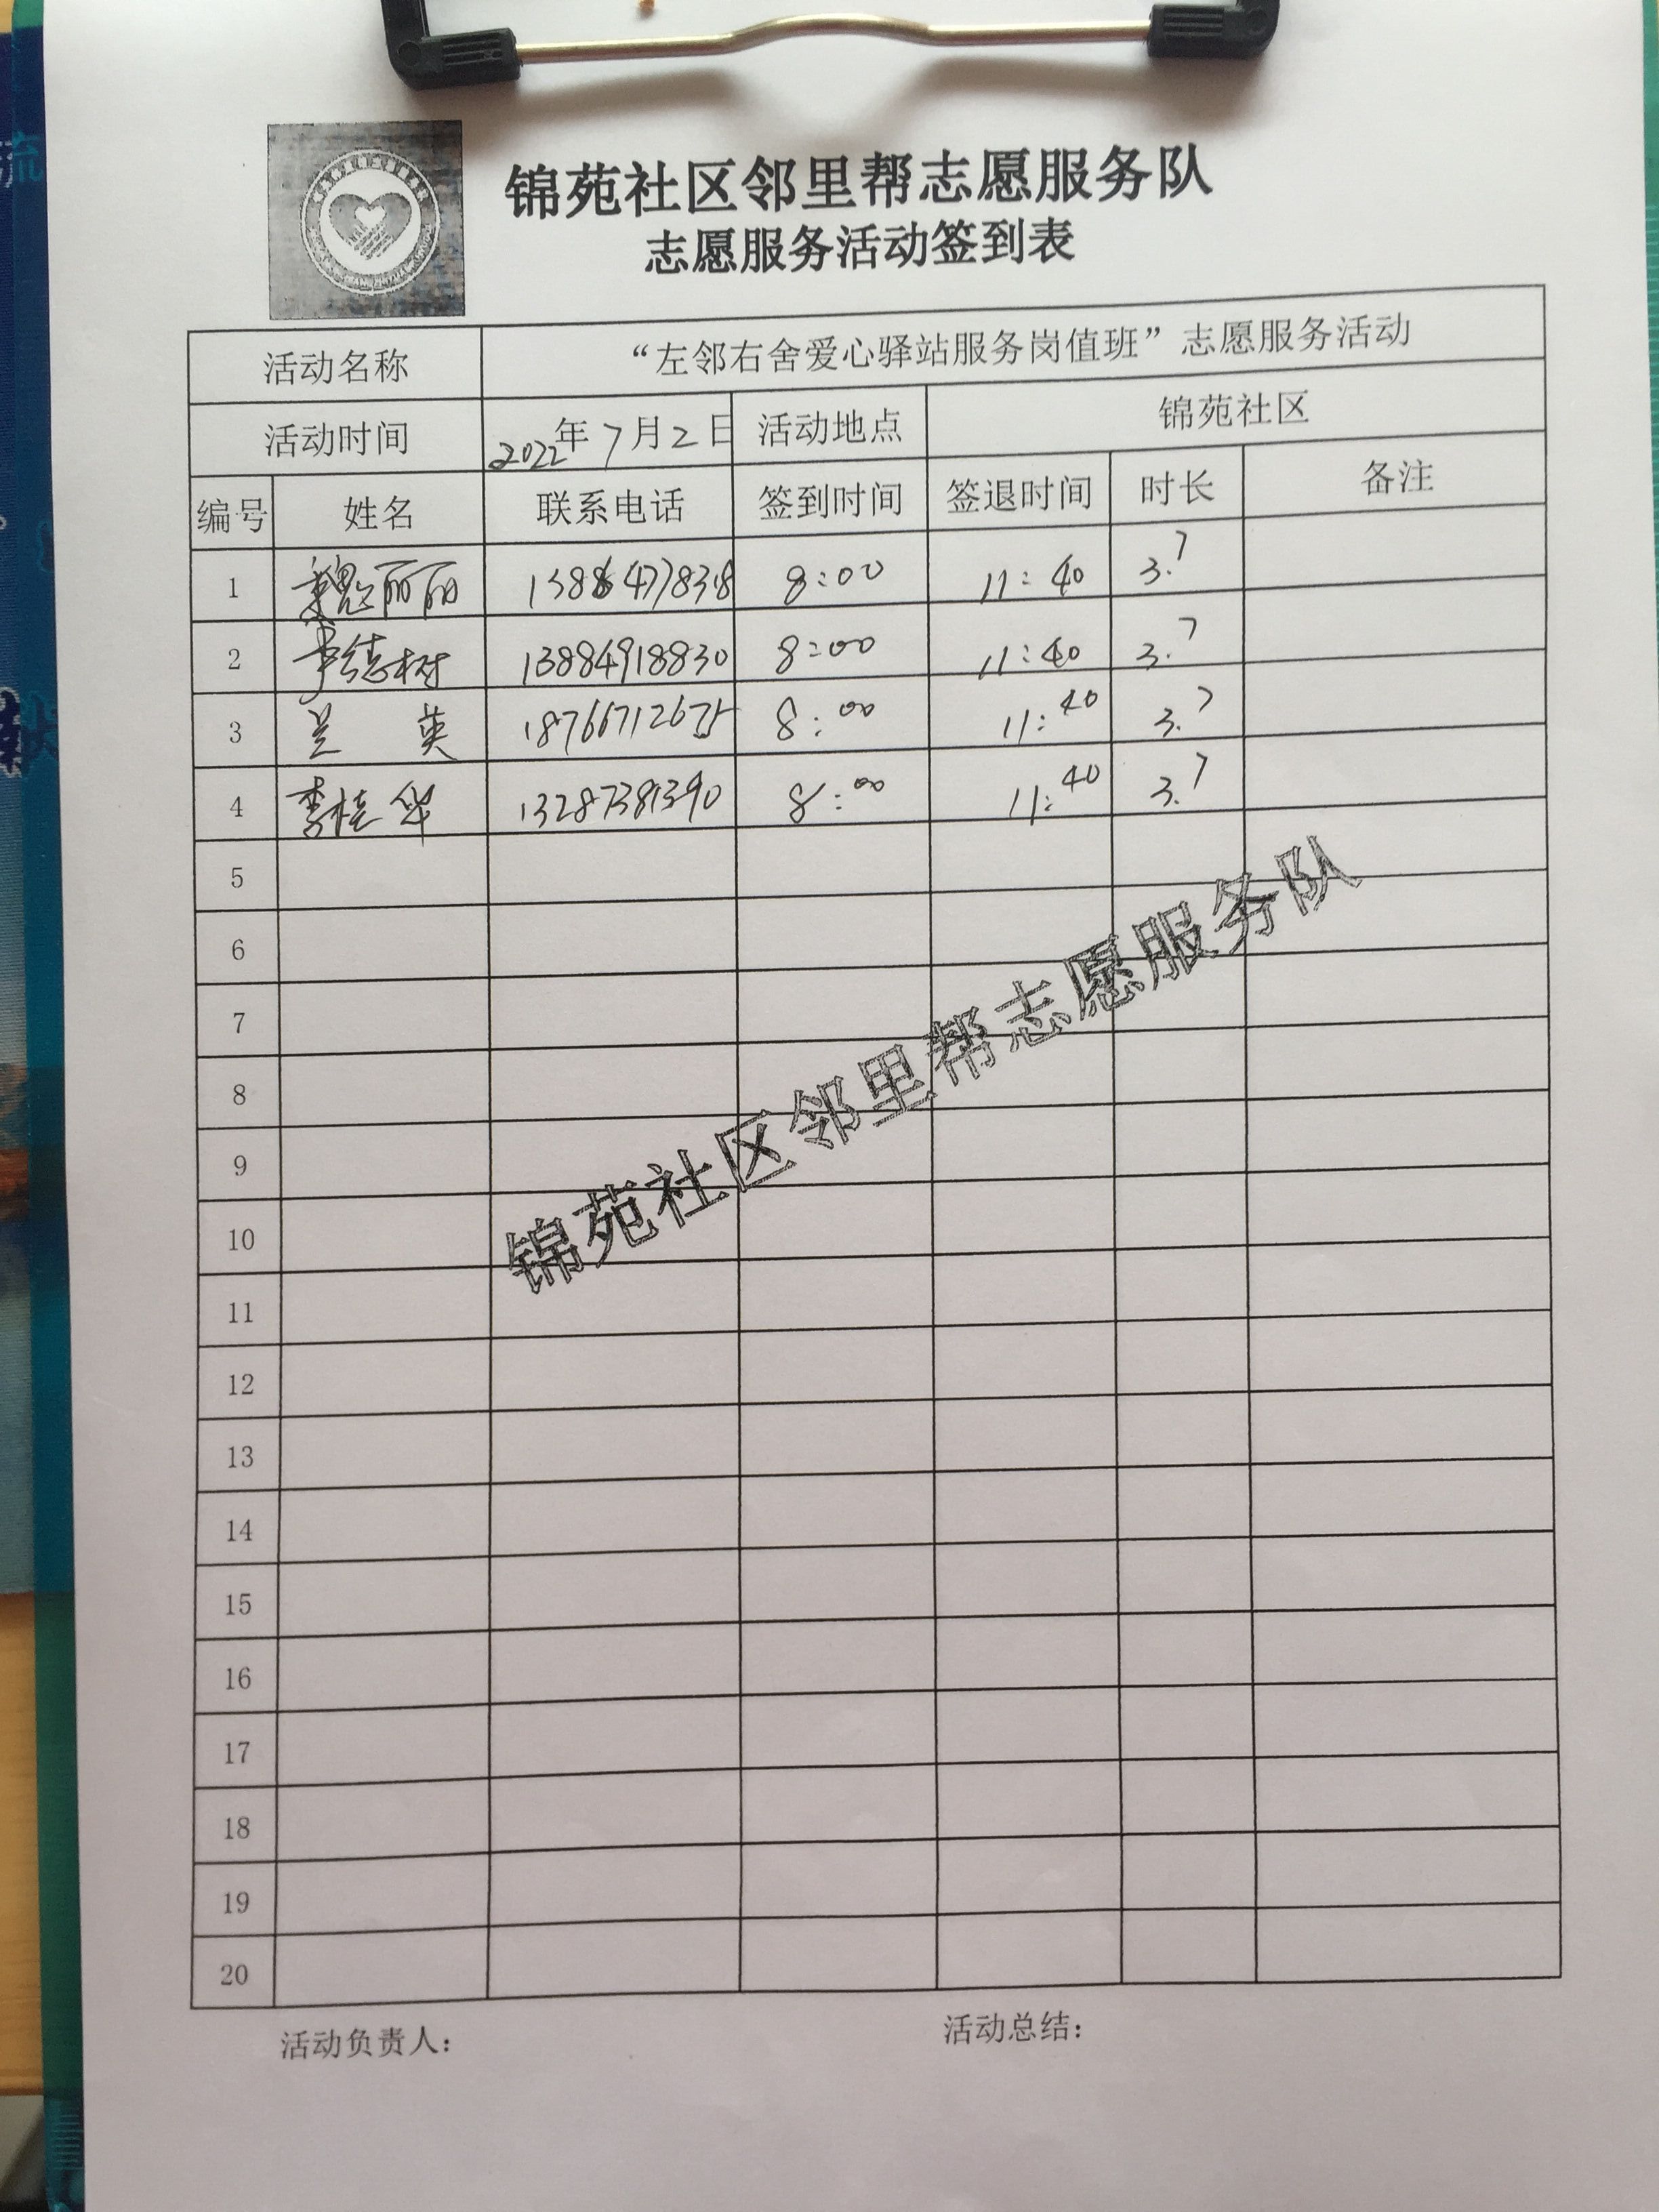 锦苑社区邻里帮志愿服务队
志愿服务活动签到表
活动名称 “左邻右舍爱心驿站服务岗值班”志愿服务活动
活动时间 2022年7月2日 活动地点 锦苑社区
编号 姓名 联系电话 签到时间 签退时间 时长 备注
1 魏丽丽 8:00 11:40 3.7
2 德树 13884918830 8:00 11:40 3.7
3 兰英 18766712675 8:00 11:40 3.7
4 李桂华 13287381390 8:00 11:40 3.7
5
6
7
8
9
10
11
12
13
14
15
16
17
18
19
20
锦苑社区邻里帮志愿服务队
活动负责人： 活动总结：